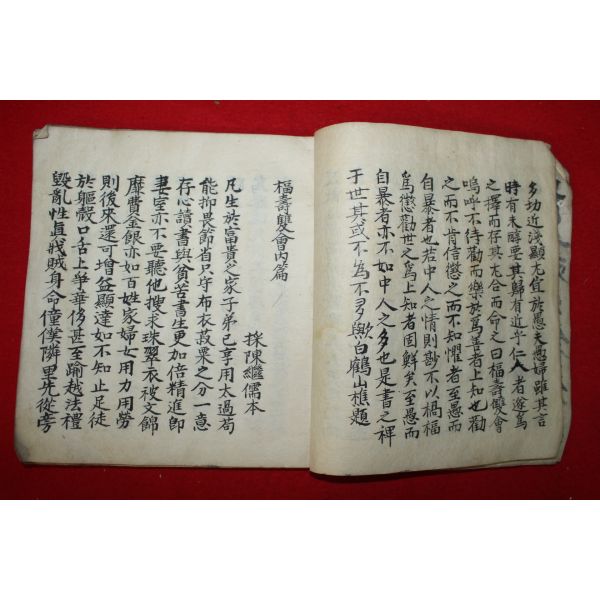 多切近淺顯尤宜於愚夫愚婦雖其言
時有未醇要其歸有近乎仁人者遂爲
之擇而存其尤合而命之曰福壽雙會
嗚呼不待勸而樂於爲善者上知也勸
之而不肯信懲之而不知懼者至愚而
自暴者也若中人之情則尠不以禍福
爲懲勸世之爲上知者固鮮矣至愚而
自暴者亦不如中人之多也是書之裨
于世其或不爲不多歟白鶴山樵題
福壽雙會內篇
採陳繼儒本
凡生於富貴之家子弟已享用太過苟
能抑畏節省只守布衣蔬粟之分一意
存心讀書與貧苦書生更加倍精進卽
妻室亦不要聽他搜求珠翠衣被文錦
靡費金銀亦如百姓家婦女用力用勞
則後來還可增益顯達如不知止足徒
於軀殼口舌上爭華侈甚至踰越法禮
毀亂性眞戕賊身命僮僕隣里先從旁